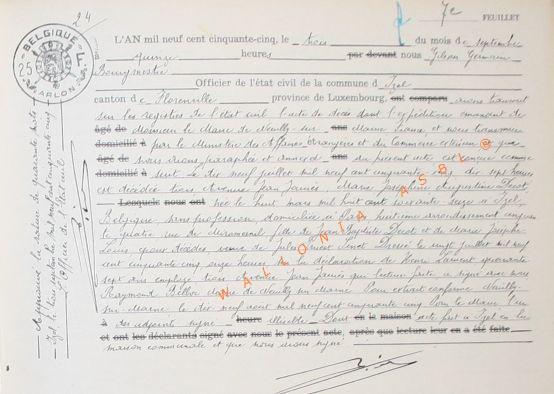 24
7e FEUILLET
L'AN mil neuf cent cinquante-cinq, le trois du mois de septembre
quinze heures par devant nous Gilson Germain
Bourgmestre
Officier de l'état civil de la commune d Izel
canton de Florenville province de Luxembourg, ont comparu avons transcrit
sur les registres de l'état civil l'acte de décès dont l'expédition émanant de
âgé de Monsieur le Maire de Neuilly-sur ans Marne France et nous transmise
domicilié à par le Ministère des Affaires Etrangères et du Commerce extérieur @ que
âgé de nous avons paraphée et annexée ans au présent acte est conçue comme
domicilié à suit Le dix neuf juillet mil neuf cent cinquante cinq dix sept heures
est décédée trois Avenue Jean Jaurès, Marie Joséphine Augustine
Lesquels nous ont née le huit mars mil huit cent soixante seize à Izel,
Belgique sans profession domiciliée à Paris huitième arrondissement cinquante
quatre rue de Miromesnil fille de Jean Baptiste et de Marie Josèphe
Louis époux décédés veuve de Dressé le vingt juillet mil neuf
cent cinquante cinq onze heures sur la déclaration de Henri Laurent quarante
sept ans employé trois Avenue Jean Jaurès qui lecture faite a signé avec nous
Raymond Maire de Neuilly sur Marne Pour extrait conforme Neuilly-
sur-Marne le dix neuf août mil neuf cent cinquante cinq Pour le Maire l'un
à des adjoints signé heure illisible Dont en la maison acte fait à Izel en la
et ont les déclarants signé avec nous le présent acte, après que lecture leur en a été faite
maison communale et que nous avons signé
Approuvé la rature de quarante mots
Izel le trois septembre mil neuf cent cinquante cinq
L'Officier de l'Etat civil
BELGIQUE
25 F
ARLON
WALLONIA ASBL @